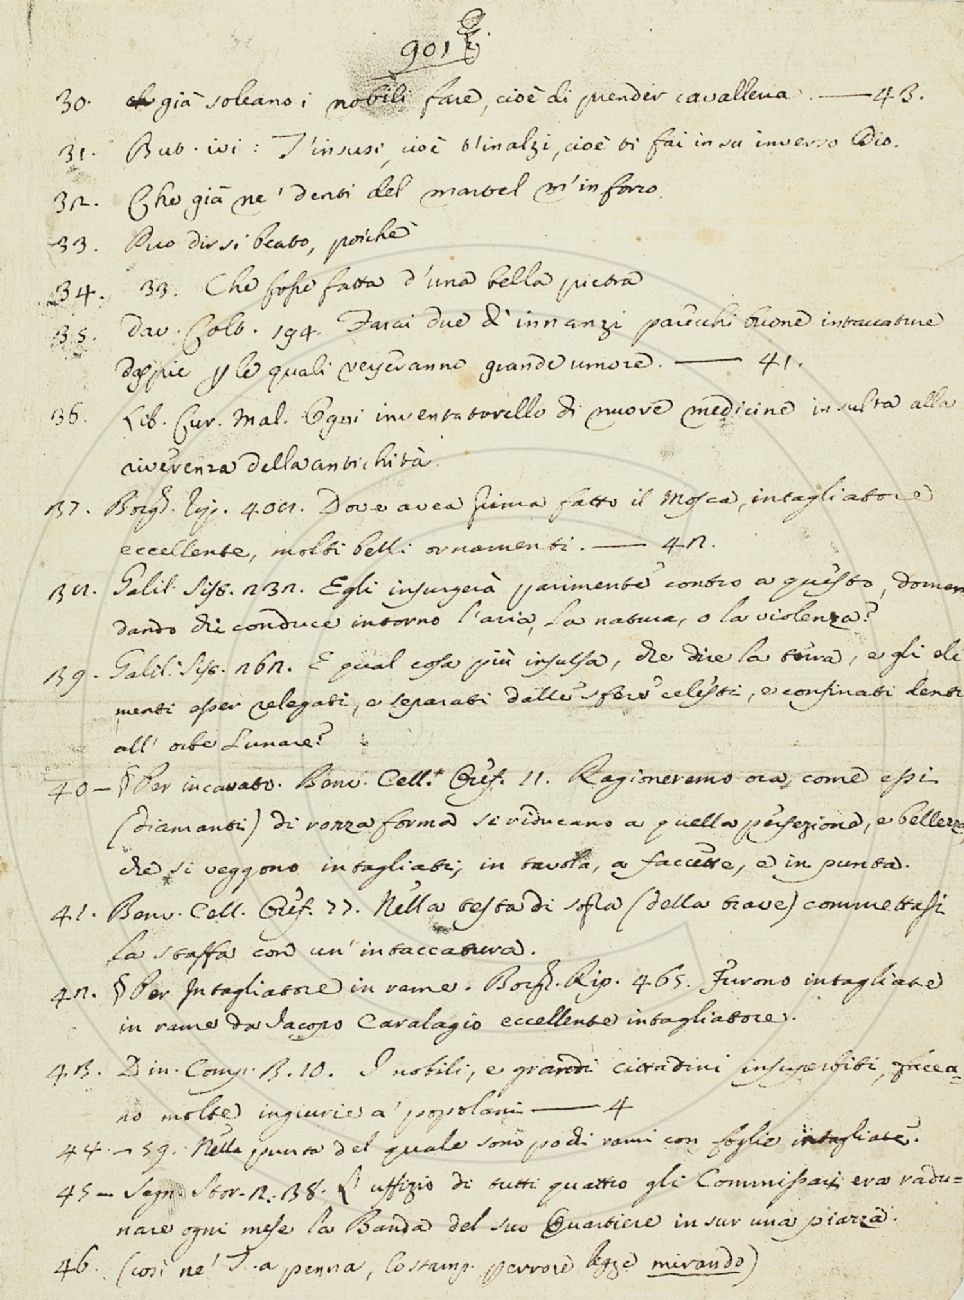 901
30. già soleano i nobili fare, cioè di prender cavalleria — 43.
31. But. ivi: T'insusi, cioè t'inalzi, cioè ti fai in su inverso Dio.
32. Che già ne' denti del martel m'inforzo.
33. Può dirsi beato, poichè
34. 33. Che fosse fatta d'una bella pietra
35. Dav. Colt. 194. Farai due dì innanzi parecchi buone intaccature
doppie le quali verseranno grande umore. — 41.
36. Lib. Cur. Mal. Ogni inventatorello di nuove medicine insulta alla
riverenza della antichità.
37. Borgh. Rip. Dove avea prima fatto il Mosca, intagliatore
eccellente, molti belli ornamenti. — 42.
38. Galil. Sist. 232. Egli insurgerà parimente contro a questo, doman
dando chi conduce intorno l'aria, la natura, o la violenza?
39. Galil. Sist. 262. E qual cosa più insulsa, che dire la terra, e gli ele
menti esser relegati, e separati dalle sfere celesti, e confinati dentr
all' orbe Lunare?
40 — § Per incavato. Benv. Cell. Oref. 11. Ragioneremo ora, come essi
(diamanti) di rozza forma si riducano a quella perfezione, e bellezza,
che si veggono intagliati, in tavola, a faccette, e in punta.
41. Benv. Cell. Oref. 77. Nella testa di sopra (della trave) commettasi
la staffa con un' intaccatura.
42. § Per Intagliatore in rame. Borgh. Rip. 465. Furono intagliate
in rame da Jacopo Caralagio eccellente intagliatore.
43. Din. Comp. 3. 10. I nobili, e grandi cittadini insuperbiti, facea=
no molte ingiurie a' popolani — 4
44 — 59. Nella punta del quale sono pochi rami con foglie intagliate.
45 — Segn. Stor. 2. 38. L' uffizio di tutti quattro gli Commissarj era radu=
nare ogni mese la Banda del suo Quartiere in sur una piazza.
46. (così ne' T. a penna, lo stamp. per errore legge mirando)